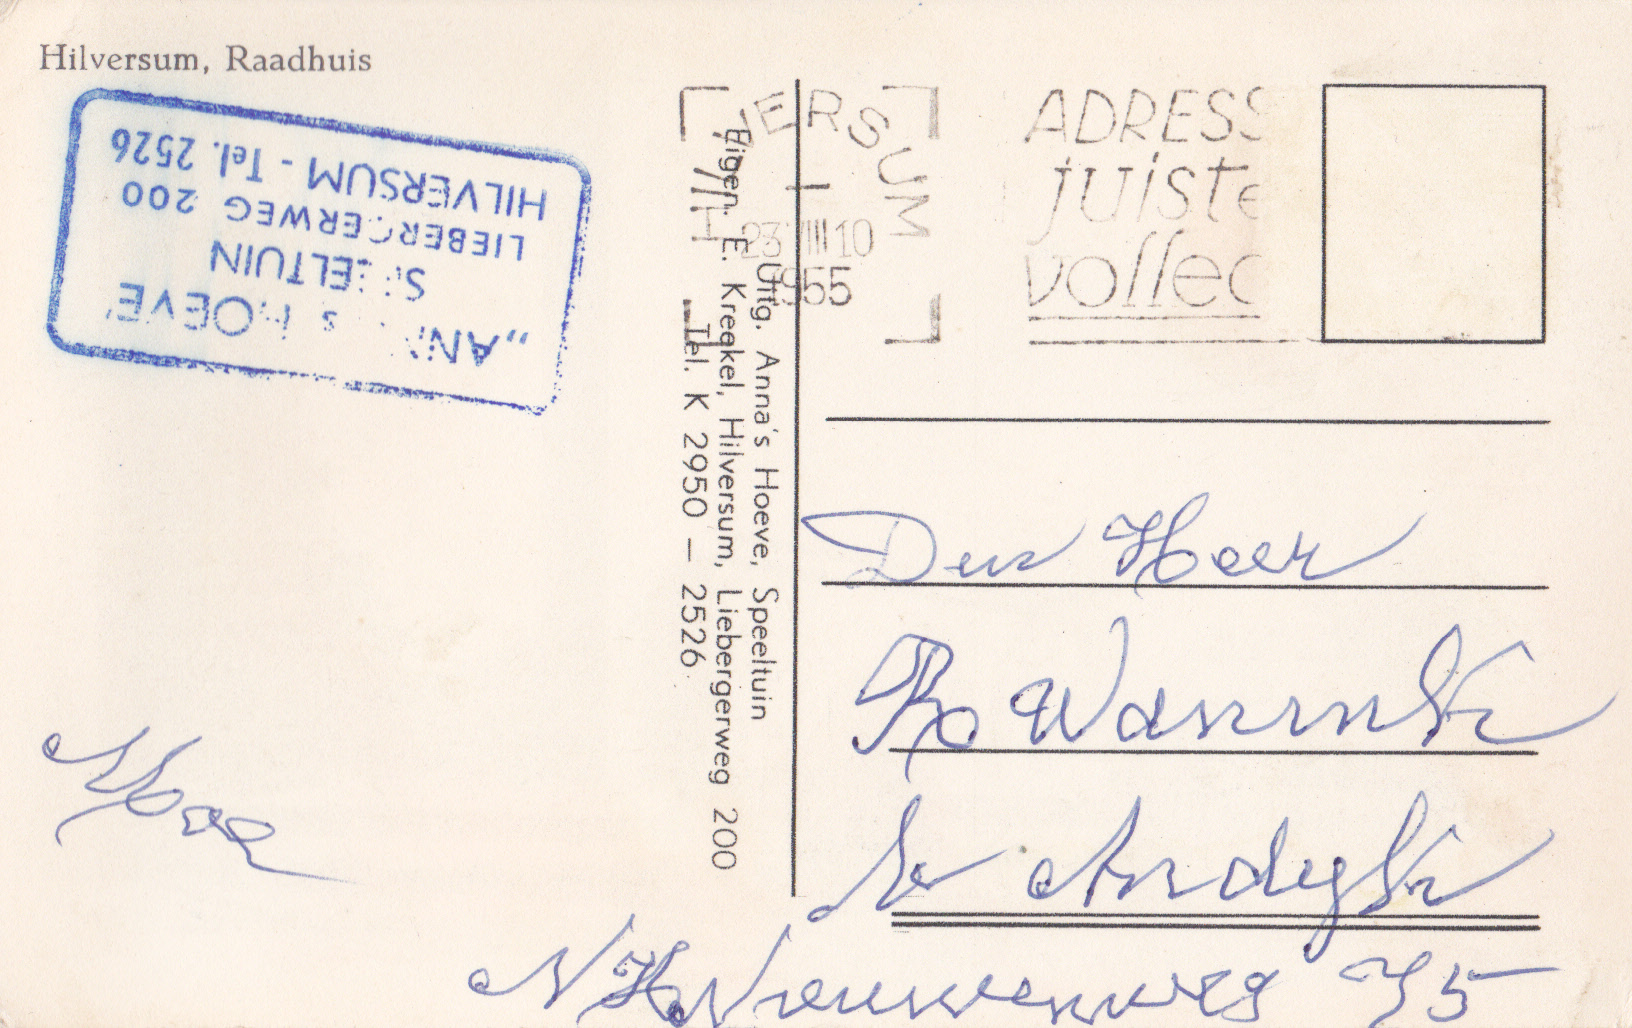 Hilversum, Raadhuis
„ANNA'S HOEVE"
SPEELTUIN
LIEBERGERWEG 200
HILVERSUM - Tel. 2526
Uitg. Anna's Hoeve, Speeltuin
Eigen. E. Kreekel, Hilversum, Liebergerweg 200
Tel. K 2950 — 2526
VERSUM
23 VIII 10
1955
ADRESS
juiste
volled
Den Heer
R Wannink
Andyk
NH 75